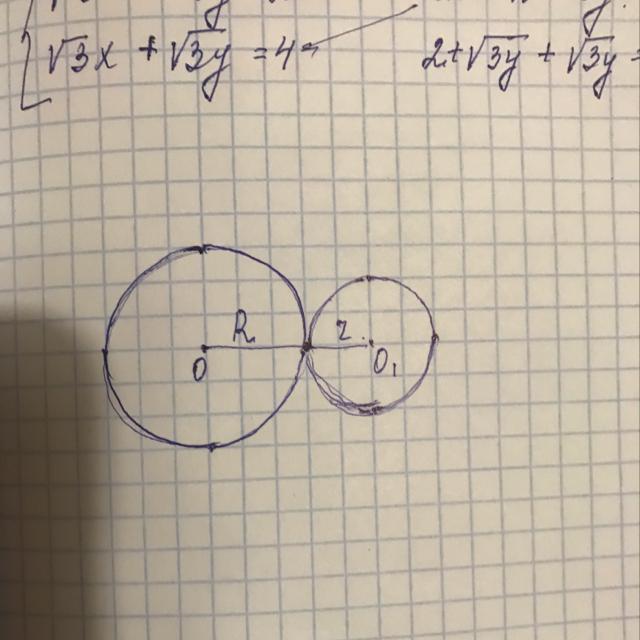 √3x + √3y = 4
2+√3y + √3y =
R r
O O₁